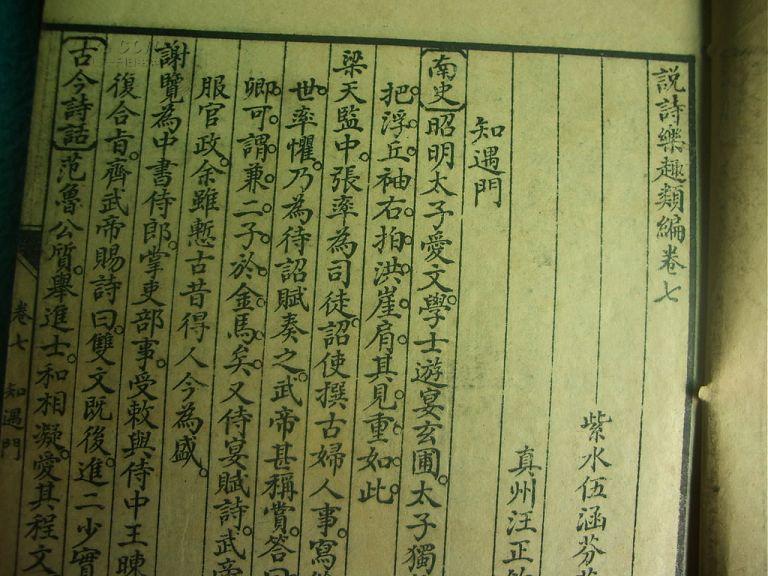 説詩樂趣類編卷七
紫水伍涵芬
真州汪正
知遇門
【南史】昭明太子愛文學士遊宴玄圃。太子獨
把浮丘袖右拍洪崖肩其見重如此
梁天監中。張率為司徒。詔使撰古婦人事。寫
世。率懼。乃為待詔賦奏之。武帝甚稱賞。答曰
卿可謂兼二子於金馬矣。又侍宴賦詩。武帝
服官政。余雖慙古昔得人今為盛。
謝覽為中書侍郎。掌吏部事。受敕與侍中王暕
復合旨。齊武帝賜詩曰。雙文既後進。二少實
【古今詩話】范魯公質。舉進士。和相凝。愛其程文
卷七 知遇門